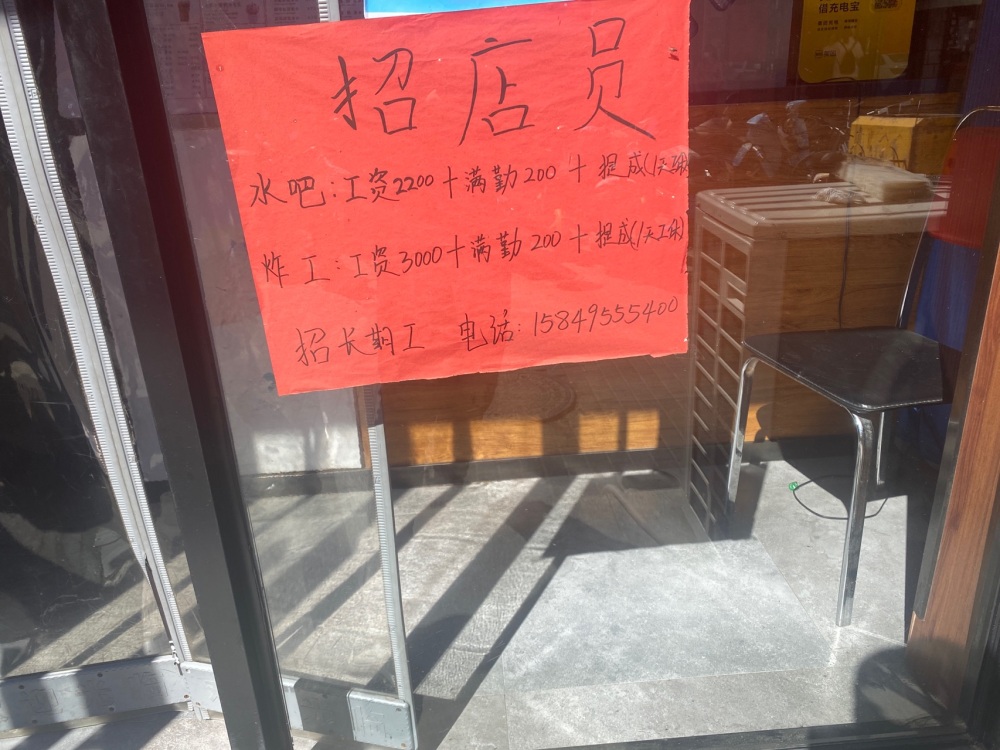 信充电宝
招店员
水吧:工资2200+满勤200+提成(1天工休)
炸工:工资3000+满勤200+提成(1天工休)
招长期工 电话:15849555400